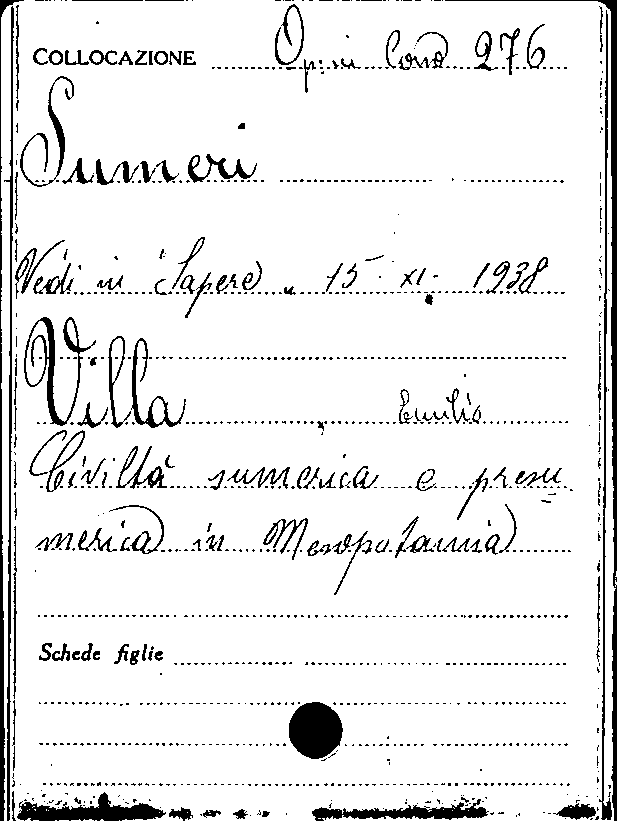 COLLOCAZIONE 276
Sumeri
Vedi in "Sapere" 15 - XI - 1938
Villa, Emilio
Civiltà sumerica e presu=
merica in Mesopotamia
Schede figlie